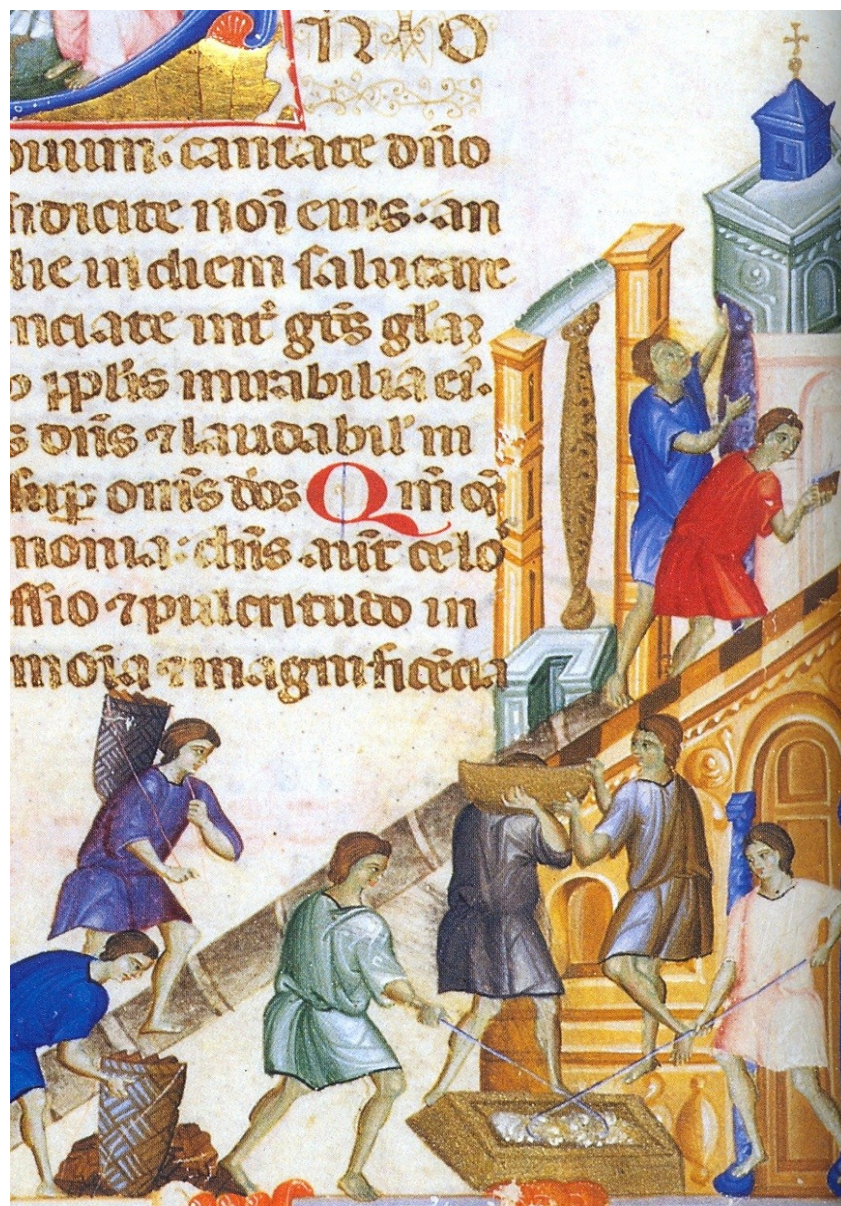 NO
ouum: cantate dño
ndicite noĩ eius: an
he in diem salutare
nciate int̃ gẽs glaꝫ
pp̃lis mirabilia ei.
s dñs ⁊ laudabil' in
suꝑ om̃s dõs Qm̃ oẽ
monia: dñs aut̃ celo
ssio ⁊ pulcritudo in
moĩa ⁊ magnificẽcia